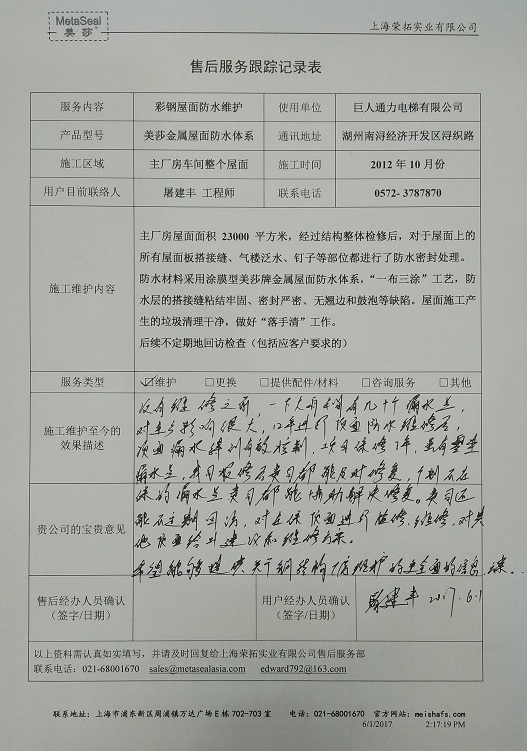 MetaSeal
美莎
上海荣拓实业有限公司
售后服务跟踪记录表
服务内容 彩钢屋面防水维护 使用单位 巨人通力电梯有限公司
产品型号 美莎金属屋面防水体系 通讯地址 湖州南浔经济开发区浔织路
施工区域 主厂房车间整个屋面 施工时间 2012 年 10 月份
用户目前联络人 屠建丰 工程师 联系电话 0572- 3787870
施工维护内容
主厂房屋面面积 23000 平方米，经过结构整体检修后，对于屋面上的
所有屋面板搭接缝、气楼泛水、钉子等部位都进行了防水密封处理。
防水材料采用涂膜型美莎牌金属屋面防水体系，“一布三涂”工艺，防
水层的搭接缝粘结牢固、密封严密、无翘边和鼓泡等缺陷。屋面施工产
生的垃圾清理干净，做好“落手清”工作。
后续不定期地回访检查（包括应客户要求的）
服务类型 ☑维护 □更换 □提供配件/材料 □咨询服务 □其他
施工维护至今的
效果描述
没有维修之前，一下大雨有几十个漏水点，
对生产影响很大，12年进行顶面防水维修后，
顶面漏水得到有效控制，
漏水点，贵司都能及时修复，
保的漏水点贵司都能协助解决修复。贵司还
贵公司的宝贵意见
能不定期回访，对在保顶面进行检修、维修，对其
他顶面给出建议和维修方案。
希望能够提供关于钢结构厂房维护的更全面的信息
售后经办人员确认
（签字/日期）
用户经办人员确认
（签字/日期）
屠建丰 2017.6.1
以上资料需认真如实填写，并请及时回复给上海荣拓实业有限公司售后服务部
联系电话：021-68001670 sales@metasealasia.com edward792@163.com
联系地址：上海市浦东新区周浦镇万达广场E栋702-703室 电话：021-68001670 官方网站：meishafs.com
6/1/2017 2:17:19 PM